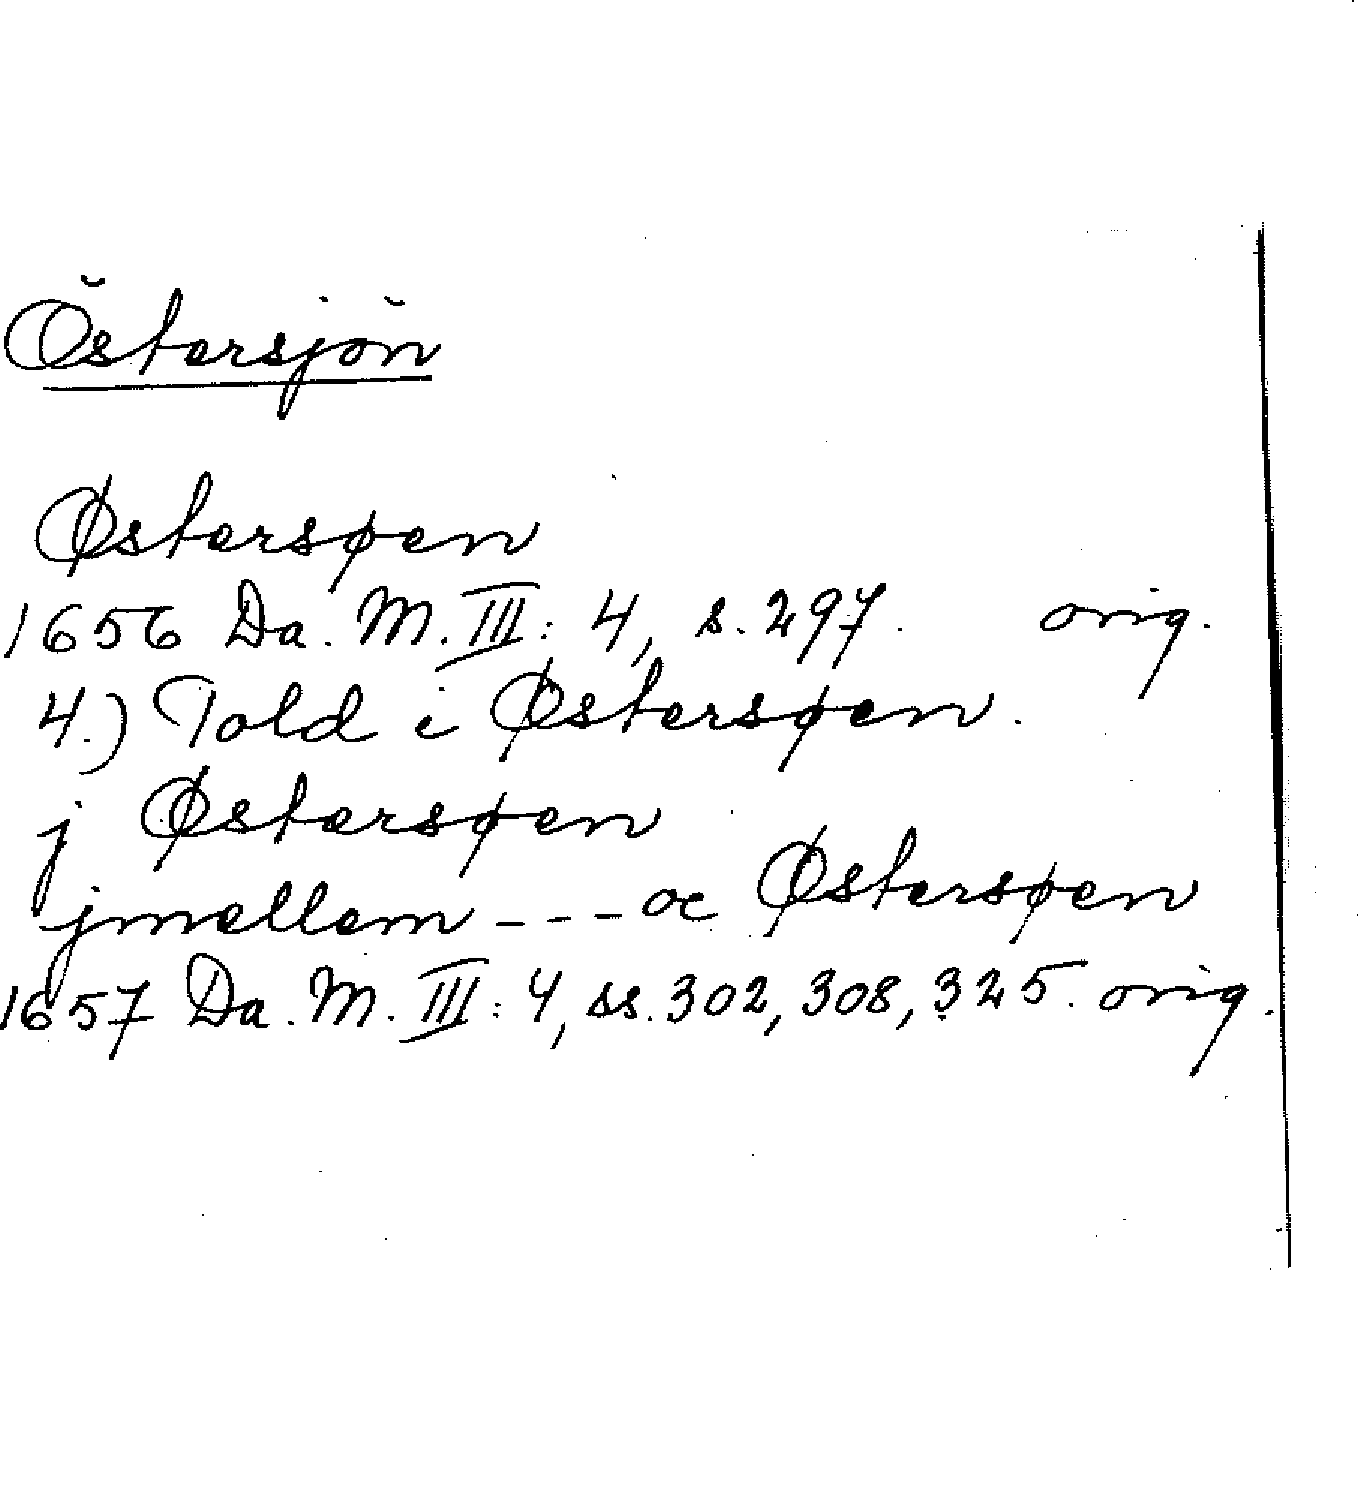 Östersjön
Østersøen
1656 Da. M. III: 4, s. 297. orig.
4.) Told i Østersøen.
j Østersøen
jmellem --- oc Østersøen
1657 Da. M. III: 4, ss. 302, 308, 325. orig.